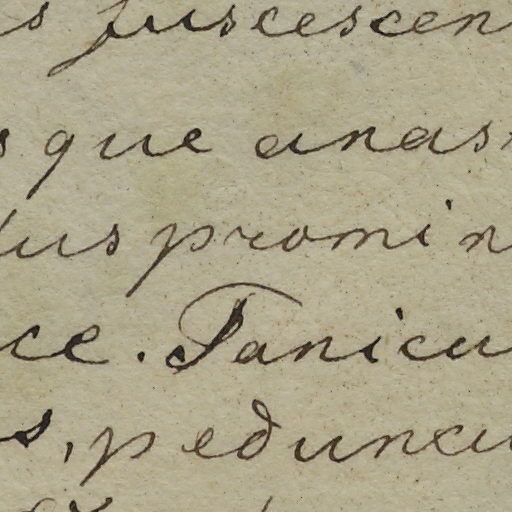 s fuscescen
s que anas
us promin
ce. Panicu
s, peduncu